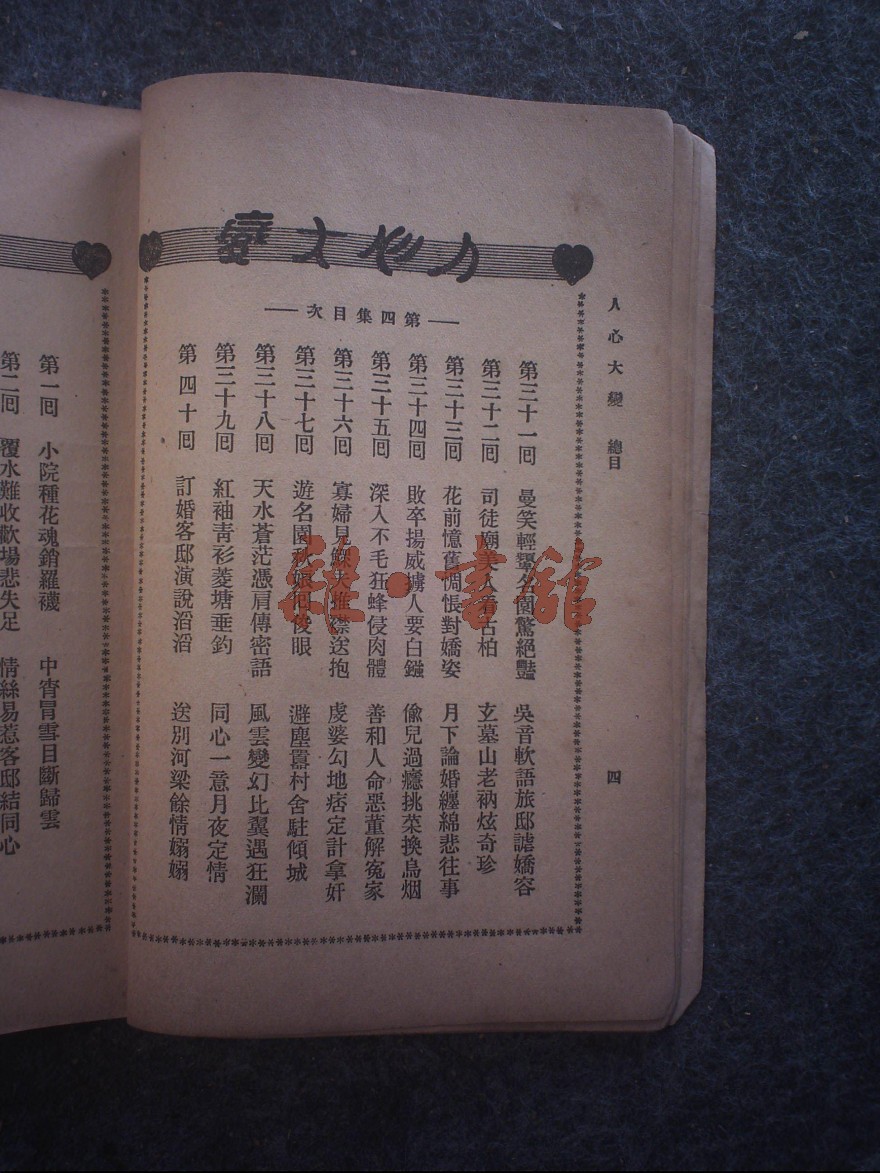 人心大變　總目
四
人心大變
第四集目次
第三十一囘　曼笑輕顰名園驚絕豔　吳音軟語旅邸謔嬌容
第三十二囘　司徒廟美人看古柏　玄墓山老衲炫奇珍
第三十三囘　花前憶舊惆悵對嬌姿　月下論婚纏綿悲往事
第三十四囘　敗卒揚威擄人要白鏹　偸兒過癮挑菜換烏烟
第三十五囘　深入不毛狂蜂侵肉體　善和人命惡董解寃家
第三十六囘　寡婦見鰥夫推襟送抱　虔婆勾地痞定計拿奸
第三十七囘　遊名園秋娘囘俊眼　避塵囂村舍駐傾城
第三十八囘　天水蒼茫憑肩傳密語　風雲變幻比翼遇狂瀾
第三十九囘　紅袖靑衫菱塘垂釣　同心一意月夜定情
第四十囘　訂婚客邸演說滔滔　送別河梁餘情嫋嫋
雜·書館
第一囘　小院種花魂銷羅襪　中宵冒雪目斷歸雲
第二囘　覆水難收歡場悲失足　情絲易惹客邸結同心